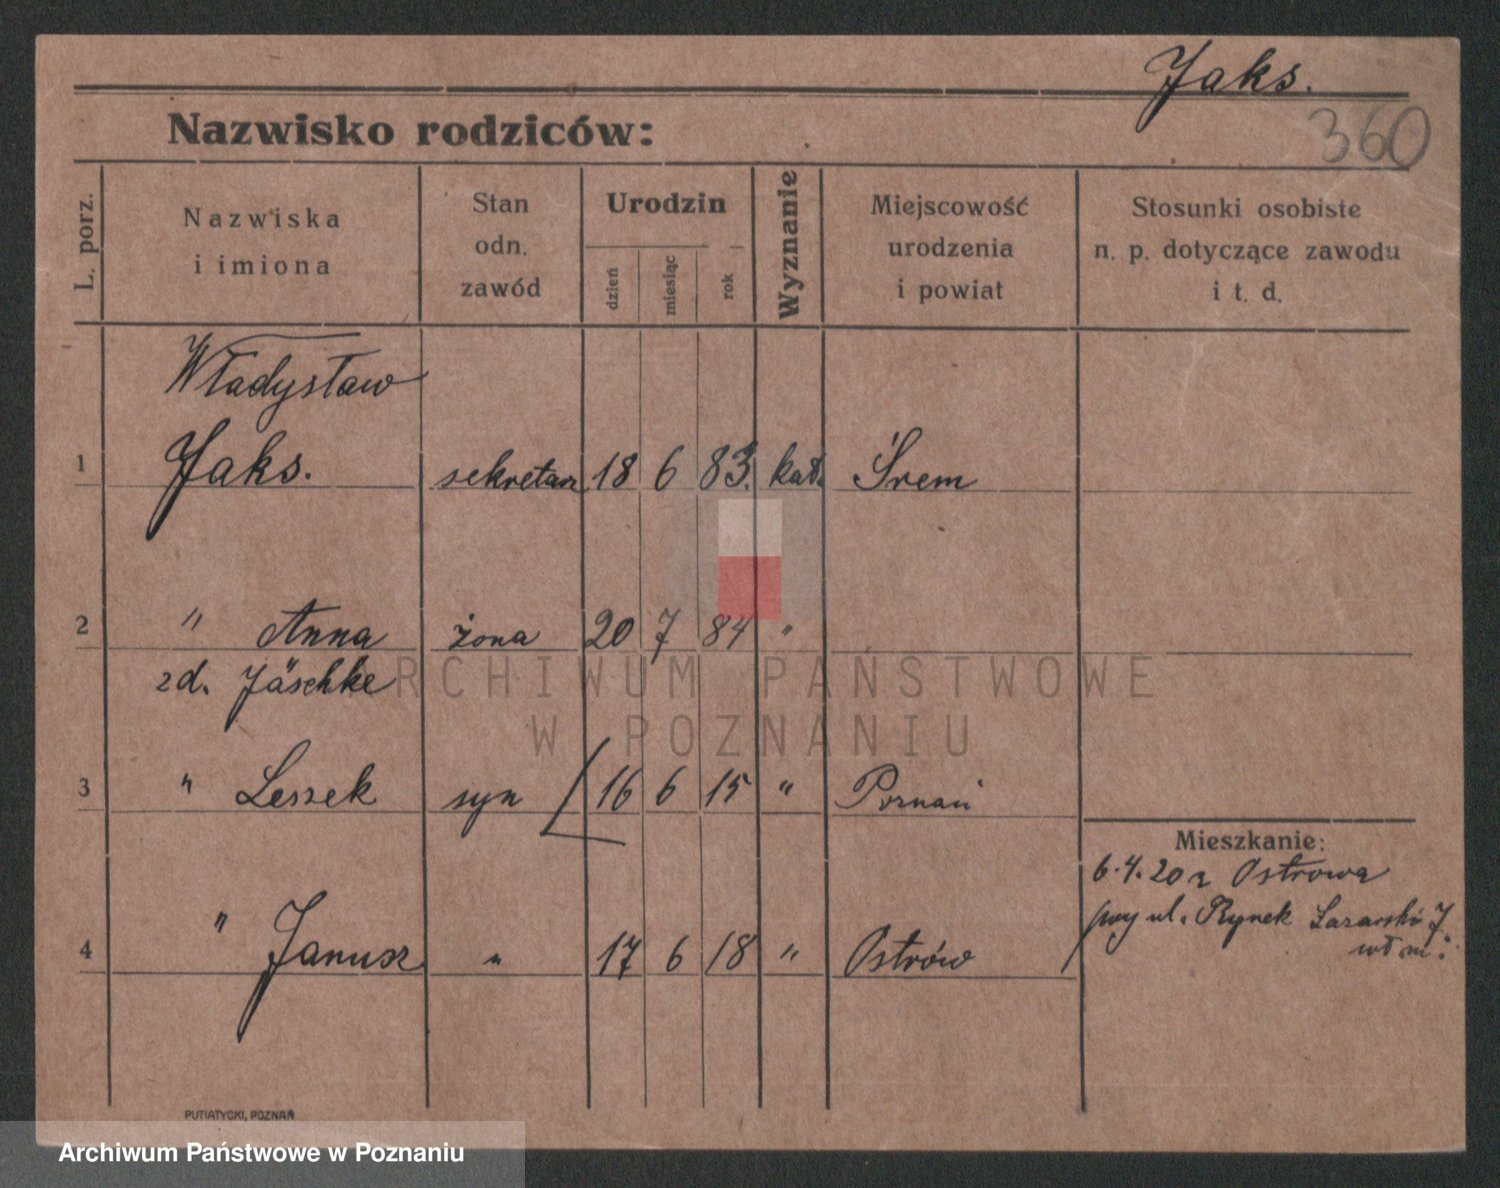 Jaks.
360
Nazwisko rodziców:
L. porz.
Nazwiska
i imiona
Stan
odn.
zawód
Urodzin
dzień
miesiąc
rok
Wyznanie
Miejscowość
urodzenia
i powiat
Stosunki osobiste
n. p. dotyczące zawodu
i t. d.
Władysław
1 Jaks. sekretarz 18 6 83. kat. Śrem
2 " Anna żona 20 7 84 "
zd. Jäschke
ARCHIWUM PAŃSTWOWE
W POZNANIU
3 " Leszek syn 16 6 15 " Poznań
Mieszkanie:
6.4.20 z Ostrowa
ul. Rynek Łazarski 7
4 " Janusz " 17 6 18 " Ostrów
PUTIATYCKI, POZNAŃ
Archiwum Państwowe w Poznaniu